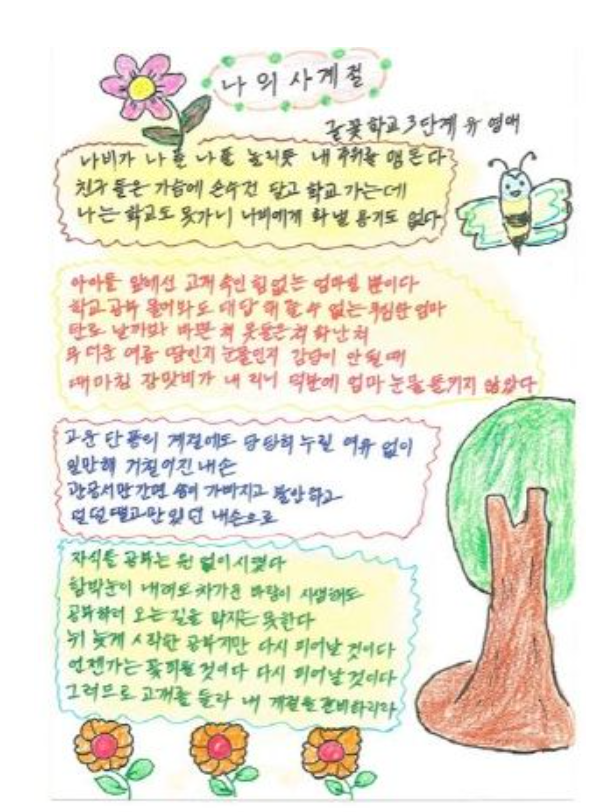 나의 사계절
글꽃학교 3단계 유 영애
나비가 나풀 나풀 놀리듯 내 주위를 맴돈다
친구 들은 가슴에 손수건 달고 학교 가는데
나는 학교도 못가니 나비에게 화 낼 용기도 없다
아이들 앞에선 고개 숙인 힘 없는 엄마일 뿐이다
학교공부 물어와도 대답 해 줄 수 없는 무심한 엄마
탄로 날까봐 바쁜 척 못들은척 화난 척
무더운 여름 땀인지 눈물인지 감당이 안될 때
때마침 장맛비가 내 리니 덕분에 엄마 눈물 들키지 않았다
고운 단 풍의 계절에도 당당히 누릴 여유 없이
일만해 거칠어진 내손
관공서만 가면 숨이 가빠지고 불안하고
덜덜 떨고만 있던 내손으로
자식들 공부는 원 없이 시켰다
함박눈이 내려도 차가운 바람이 시샘해도
공부하러 오는 길을 막지는 못한다
뒤 늦게 시작한 공부지만 다시 피어날 것이다
언젠가는 꽃피울 것이다 다시 피어날 것이다
그러므로 고개를 들라 내 계절을 준비하리라